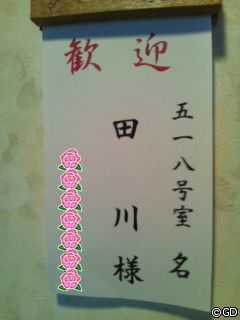 歓迎
五一八号室 名
田川様
©GD